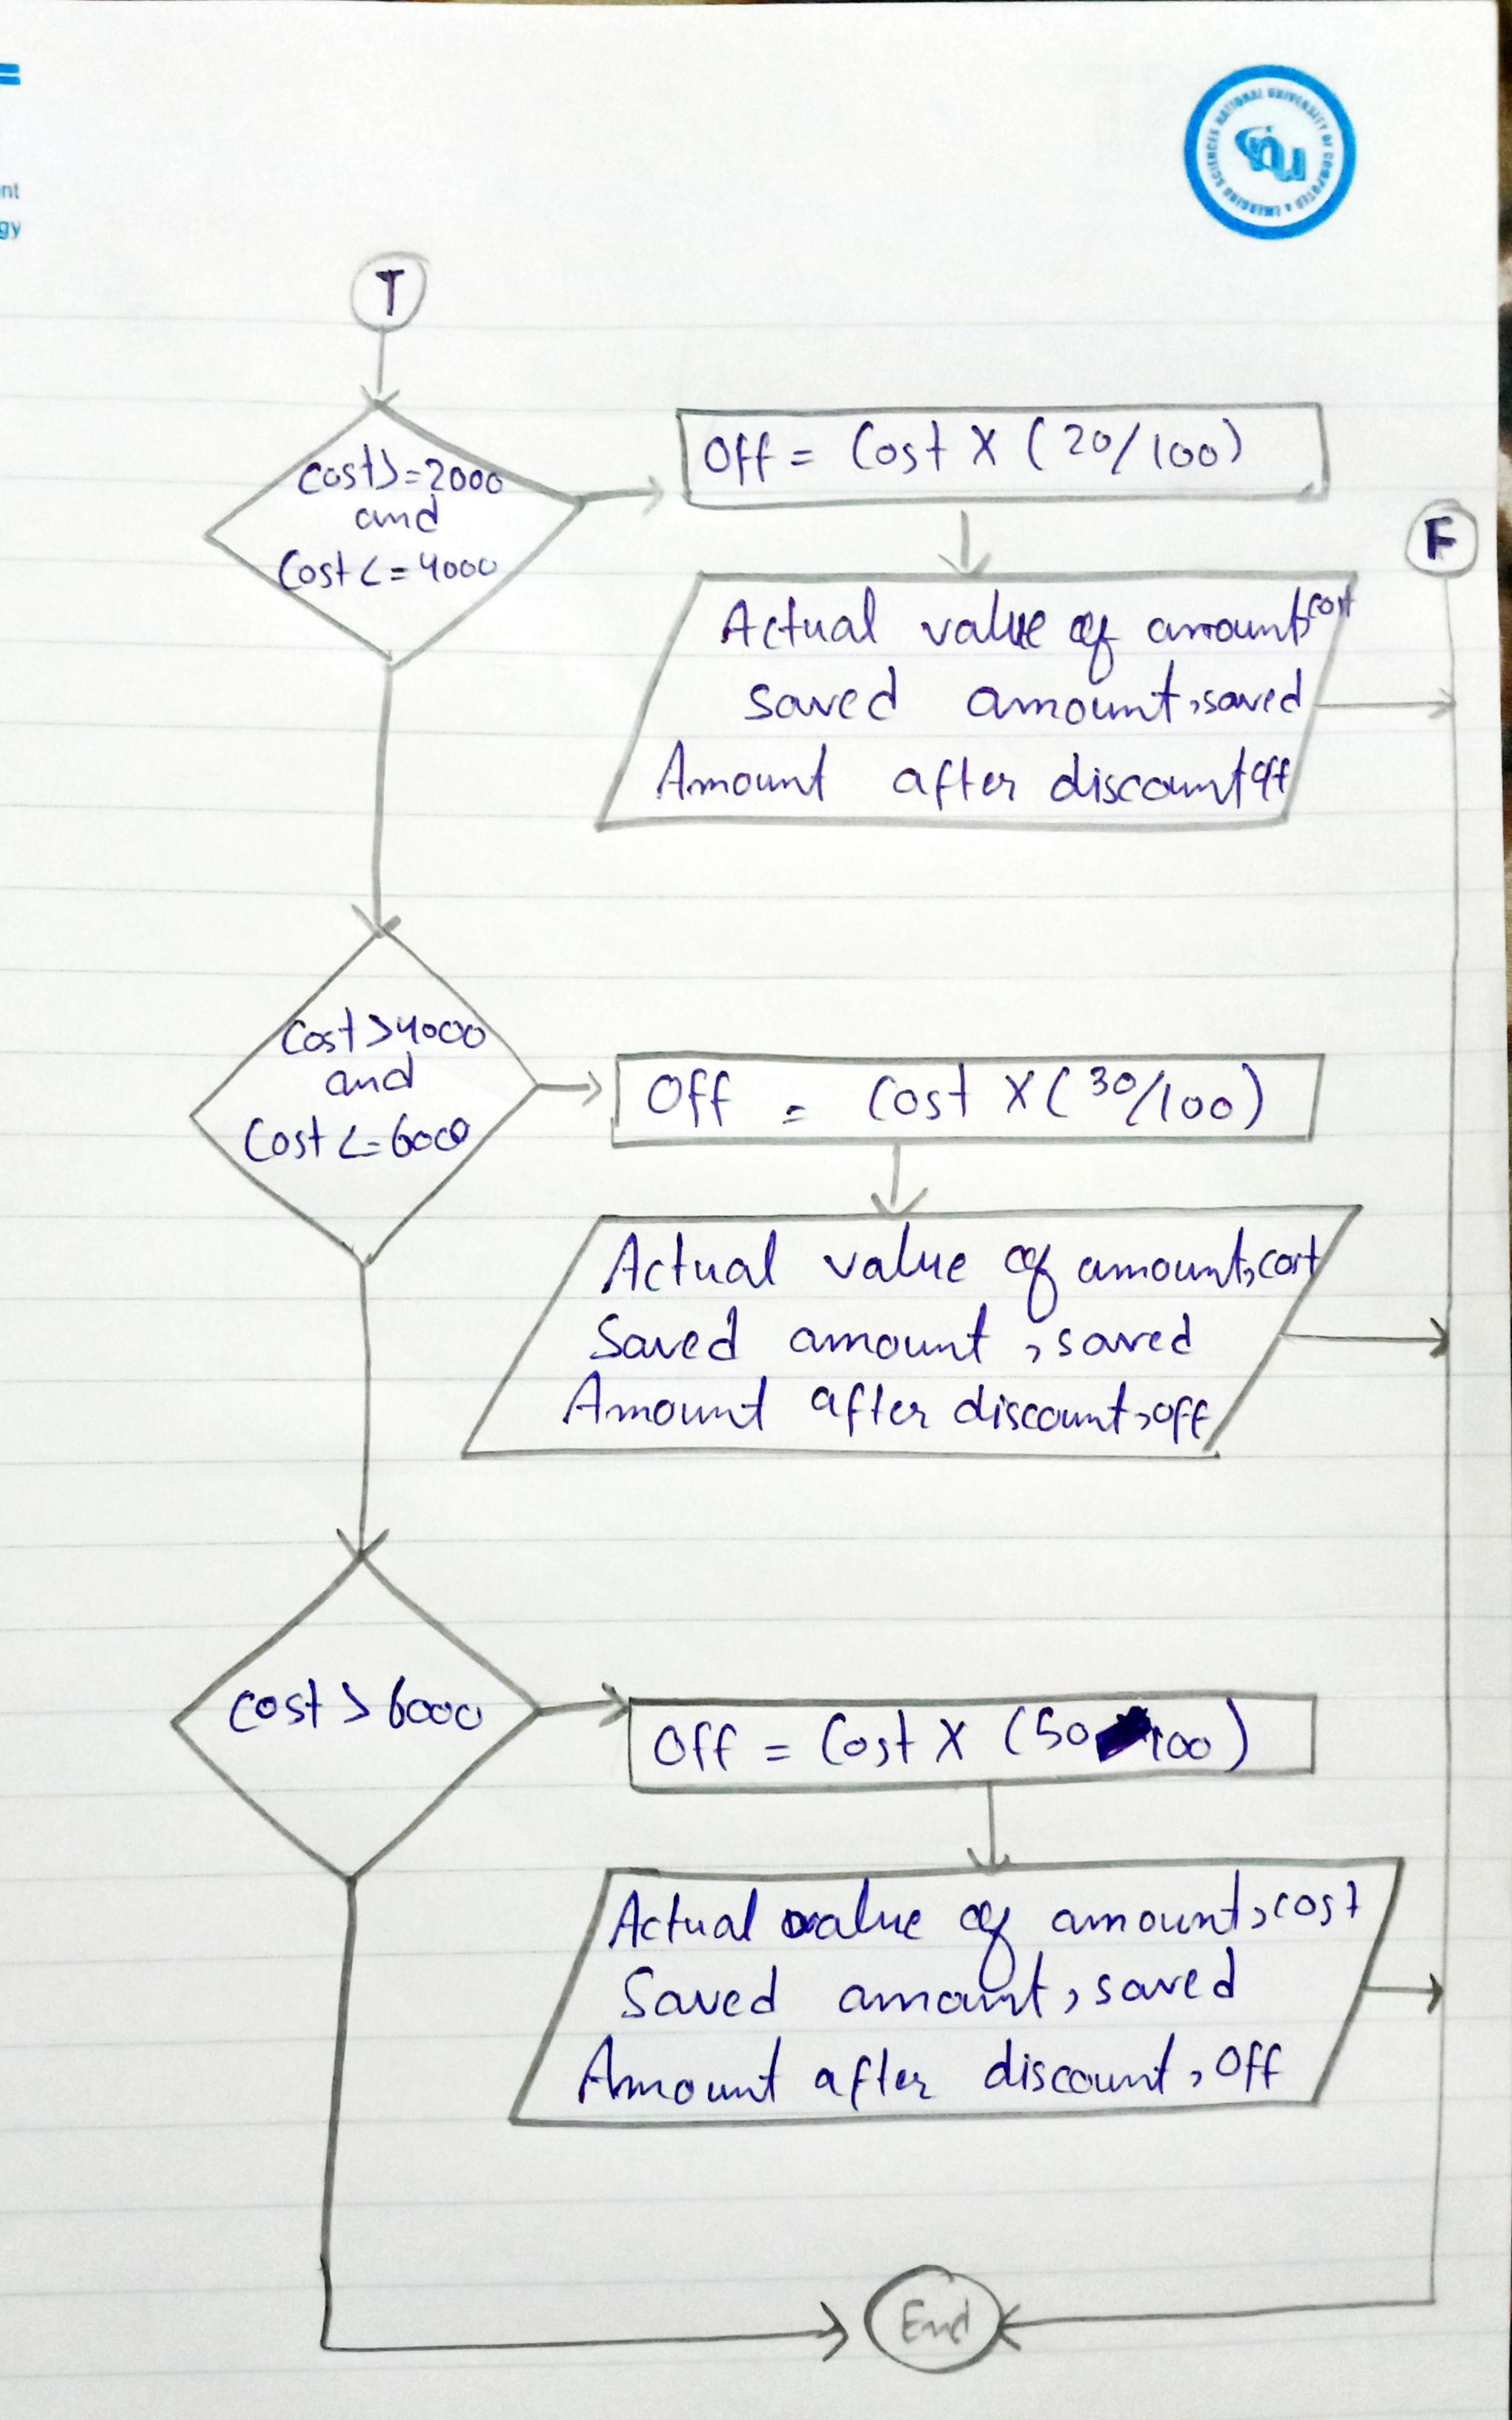 nt
gy
NATIONAL UNIVERSITY OF COMPUTER & EMERGING SCIENCES
T
Cost>=2000
and
Cost<=4000
Off = Cost X (20/100)
F
Actual value of amount,cost
saved amount,saved
Amount after discount off
Cost>4000
and
Cost<=6000
Off = Cost X (30/100)
Actual value of amount,cost
Saved amount ,saved
Amount after discount,off
Cost > 6000
Off = Cost X (50 100)
Actual value of amount,cost
Saved amount, saved
Amount after discount, Off
End